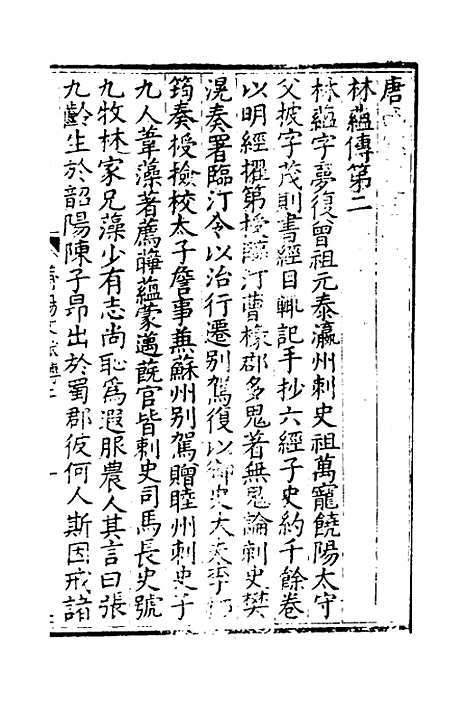 唐
林蘊傳第二
林蘊字夢復曾祖元泰瀛州刺史祖萬寵饒陽太守
父披字茂則書經目輒記手抄六經子史約千餘卷
以明經擢第授臨汀曹椽郡多鬼著無鬼論刺史樊
滉奏署臨汀令以治行遷别駕復以御史大夫李
筠奏授檢校太子詹事兼蘇州别駕贈睦州刺史子
九人葦藻著薦曄蘊蒙邁蔇官皆刺史司馬長史號
九牧林家兄藻少有志尚恥爲遐服農人其言曰張
九齡生於韶陽陳子昻出於蜀郡彼何人斯因戒諸